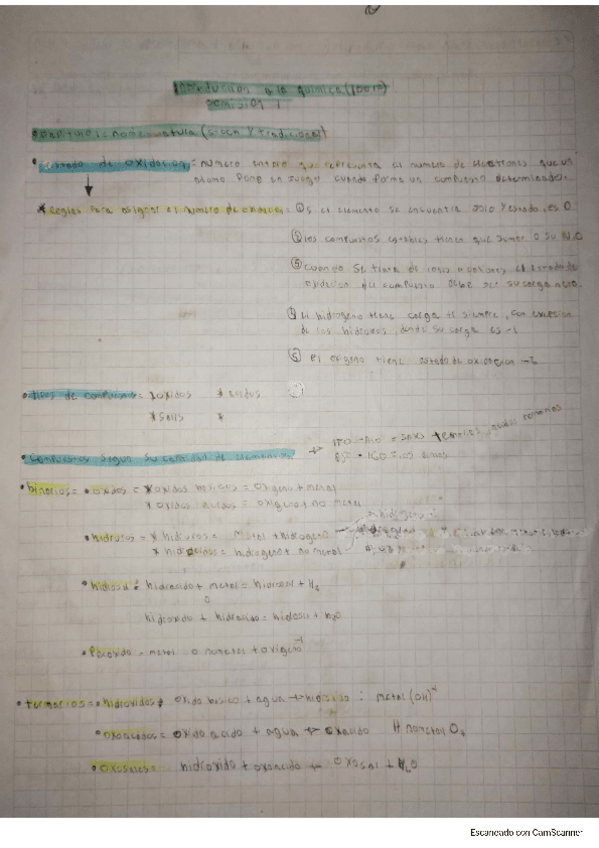 Introducción a la química (10010)
Comisión 1
nomenclatura (stock y tradicional)
• estado de oxidación = número entero que representa el número de electrones que un
átomo pone en juego cuando forma un compuesto determinado.
* reglas para asignar el número de oxidación: ① Si el elemento se encuentra solo su estado es 0
los compuestos estables tienen que sumar 0 su N.O
③ Cuando se trata de iones o aniones el estado de
oxidación del compuesto debe ser su carga neta.
④ el hidrógeno tiene carga +1 siempre, con excepción
de los hidruros, donde su carga es -1
⑤ el oxígeno tiene estado de oxidación -2
• Tipos de compuestos = *oxidos * acidos
*sales *
• Compuestos según su cantidad de elementos
• binarios = • oxidos = * oxidos basicos = oxigeno + metal
* oxidos acidos = oxigeno + no metal
• hidruros = * hidruros = metal + hidrogeno
* hidracidos = hidrogeno + no metal
hidracido + metal = hidrosal + H₂
hidroxido + hidracido = hidrosal + H₂O
• Peroxido = metal o nometal + oxigeno⁻¹
• ternarios = • hidroxidos: oxido basico + agua → hidroxido : metal (OH)ˣ
• oxoacidos = oxido acido + agua → oxacido H nometal O₄
• oxosales = hidroxido + oxoacido → oxosal + H₂O
Escaneado con CamScanner